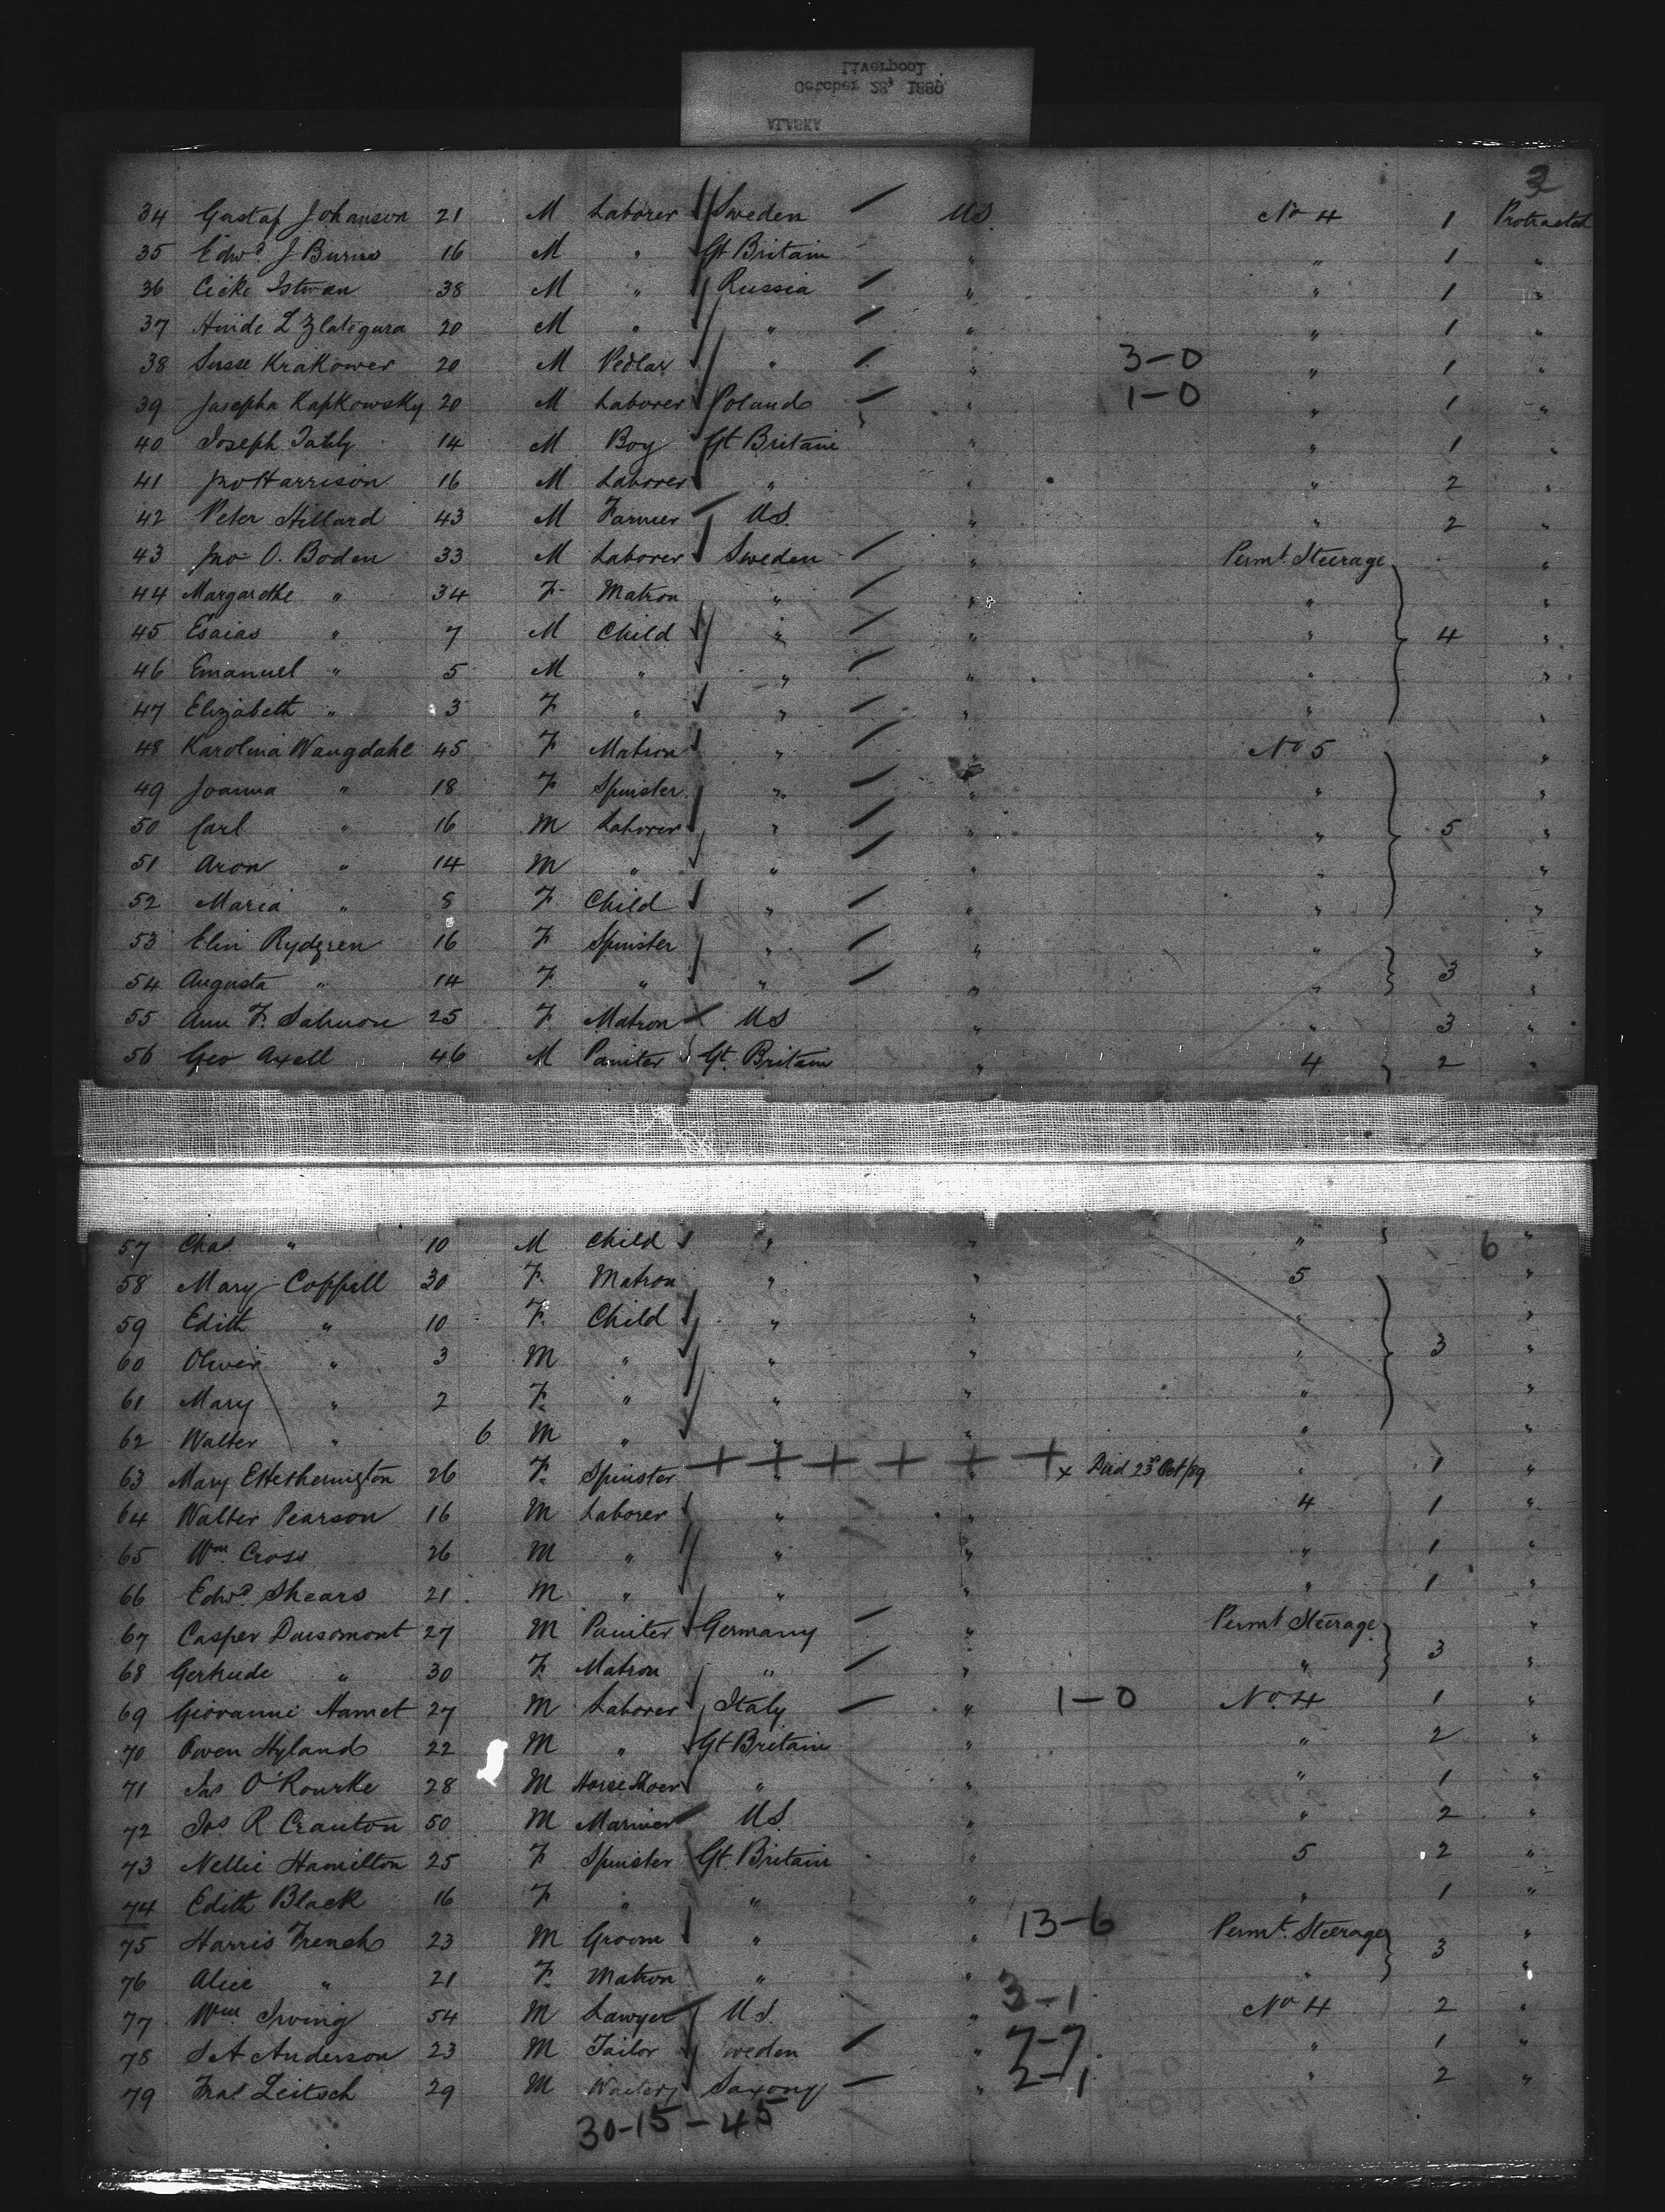 Liverpool
October 28, 1889
ALASKA
3
34 Gustaf Johanson 21 M Laborer Sweden U.S. No 4 1 Protracted
35 Edwd J Burns 16 M " Gt Britain " " 1 "
36 Cicki Istvan 38 M " Russia " " 1 "
37 20 M " " " " 1 "
38 Susse Krakower 20 M Pedlar " " 3-0 " 1 "
39 Josepha Kapkowsky 20 M Laborer Poland " 1-0 " 1 "
40 Joseph 14 M Boy Gt Britain " " 1 "
41 Jno Harrison 16 M Laborer " " " 2 "
42 Peter Hillard 43 M Farmer U.S. " " 2 "
43 Jno O. Boden 33 M Laborer Sweden " Permt. Steerage "
44 Margarethe " 34 F Matron " " " "
45 Esaias " 7 M Child " " " 4 "
46 Emanuel " 5 M " " " " "
47 Elizabeth " 3 F " " " " "
48 Karolina Wangdahl 45 F Matron " " No 5 "
49 Joanna " 18 F Spinster " " " "
50 Carl " 16 M Laborer " " " 5 "
51 Aron " 14 M " " " " "
52 Maria " 8 F Child " " " "
53 Elin Rydgren 16 F Spinster " " " "
54 Augusta " 14 F " " " " 3 "
55 Ann F. Salmon 25 F Matron US " " 3 "
56 Geo Axell 46 M Painter Gt. Britain " 4 2 "
57 Chas " 10 M Child " " " 6 "
58 Mary Coppell 30 F Matron " " 5 "
59 Edith " 10 F Child " " " "
60 Oliver " 3 M " " " " 3 "
61 Mary " 2 F " " " " "
62 Walter " 6 M " " " " "
63 Mary E Hetherington 26 F Spinster + + + + + + x Died 23rd Oct/89 " 1 "
64 Walter Pearson 16 M Laborer " " 4 1 "
65 Wm Cross 26 M " " " " 1 "
66 Edwd Shears 21 M " " " " 1 "
67 Casper Dousomont 27 M Painter Germany " Permt Steerage "
68 Gertrude " 30 F Matron " " " 3 "
69 Giovanni Hamet 27 M Laborer Italy " 1-0 No 4 1 "
70 Owen Hyland 22 M " Gt Britain " " 2 "
71 Jas O'Rourke 28 M Horse Shoer " " " 1 "
72 Jos R Cranton 50 M Mariner U.S. " " 2 "
73 Nellie Hamilton 25 F Spinster Gt. Britain " 5 2 "
74 Edith Black 16 F " " " " 1 "
75 Harris French 23 M Groom " " 13-6 Permt. Steerage "
76 Alice " 21 F Matron " " " 3 "
77 Wm Irving 54 M Lawyer U.S. " 3-1 No 4 2 "
78 S A Anderson 23 M Tailor Sweden " 7-7 " 1 "
79 Leitsch 29 M Saxony " 2-1 " 2 "
30-15-45